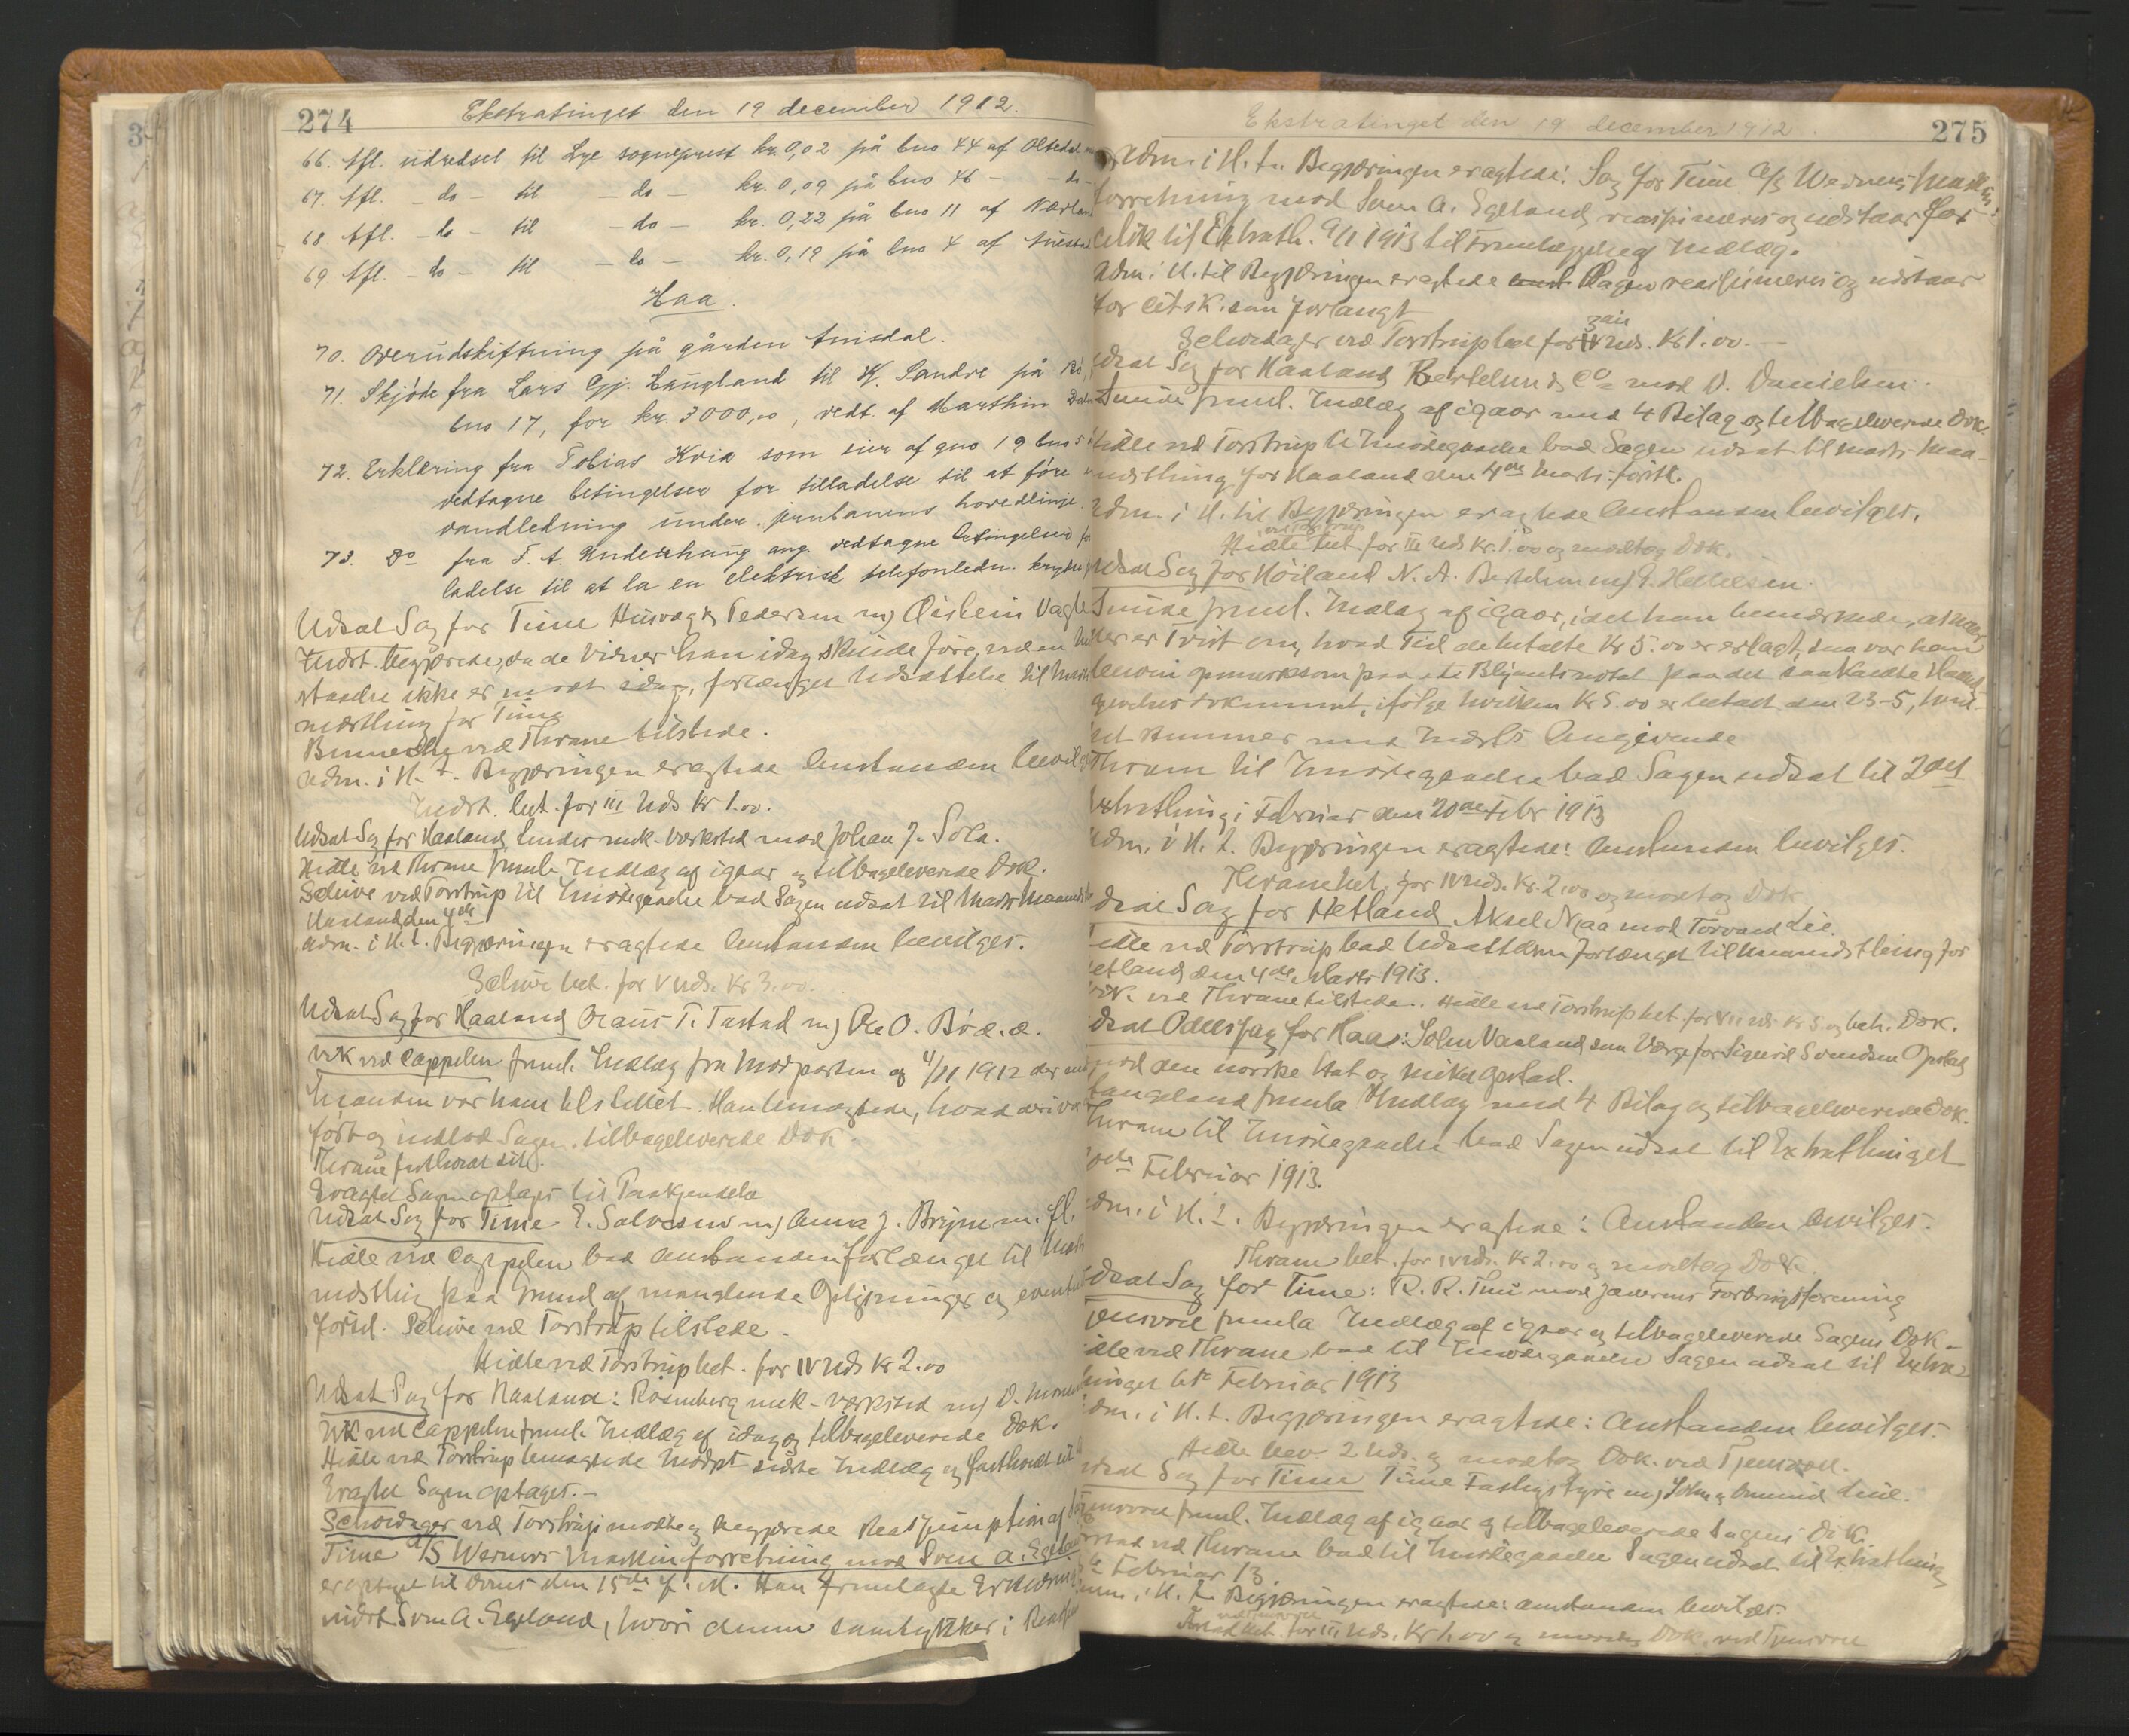 274
Ekstratinget den 19 december 1912.
66. Afl. udredsel til Lye sogneprest kr. 0,02 på bno 44 af Oltedal
67. Afl. - do - til - do - kr. 0,09 på bno 46 - - do -
68 Afl. - do - til - do - kr. 0,22 på bno 11 af Nærland
69. Afl. - do - til - do - kr. 0,19 på bno 4 af
Haa.
70. Overudskiftning på gården Anisdal.
71. Skjöde fra Lars Gj. Haugland til K. Sandve på
bno 17, for kr. 3000,00, vedt. af Marthin
72. Erklæring fra Tobias Hvia som eier af gno 19 bno 5
vedtagne betingelser for tilladelse til at före
vandledning under jernbanens hovedlinje
73. Do fra F. A. Underhaug ang. vedtagne betingelser
ladelse til at la en elektrisk telefonledn. krydse
Udsat Sag for Time Husvagk Pedersen m) Öistein Vagle
Indst. begjærede, da de Vidner han idag skulde före, ved en
ikke er mödt idag, forlænget Udsættelse til
nedsthing for Time
ved Thrane tilstede.
Adm. i H. t. Begjæringen eragtede Anstanden bevilget
Indst. bet. for III Uds Kr 1.00.
Udsat Sag for Haaland Sandes mek. Værksted mod Johan J. Sola.
Hidle ved Thrane freml. Indlæg af igaar og tilbageleverede Dok.
Schive ved Torstrup til Imödegaaelse bad Sagen udsat til Marts
Haaland den 4de
Adm. i H. t. Begjæringen eragtede Anstanden bevilget.
Schive bet. for V Uds. Kr 3.00.
Udsat Sag for Haaland Claus T. Tastad m) Ole O. Böe.
ved Cappelen freml. Indlæg fra Modparten af 4/11 1912 der
var ham tilstillet. Han benægtede, hvad deri var
fört og indlod Sagen. tilbageleverede Dok.
Thrane fastholdt sit.
Eragtet Sagen optages til Paakjendelse
Udsat Sag for Time E. Salvesen m) Anna J. Bryne m. fl.
Hidle ved Cappelen bad Anstanden forlænget til
nedsthing paa Grund af manglende Oplysninger og
Schive ved Torstrup tilstede.
Hidle ved Torstrup bet. for IV Uds Kr 2.00
Udsat Sag for Haaland: Rosenberg mek. værksted m) O.
ved Cappelen freml. Indlæg af idag og tilbageleverede Dok.
Hidle ved Torstrup benægtede Modpt. sidste Indlæg og fastholdt
Eragtet Sagen optaget.-
Schiødager ved Torstrup mödte og begjærede Reassumption af
Time A/S Werners Maskinforretning mod Sven A. Egeland
er optaget til Doms den 15de f. M. Han fremlagde Erklæring
indst. Sven A. Egeland, hvori denne samtykker i
275
Ekstratinget den 19 december 1912.
Adm. i H. t. Begjæringen eragtede: Sag for Time A/S Werners Maskin
forretning mod Sven A. Egeland reassumeres og udstaar for
Citsk til Extrath. 9/1 1913 til Fremlæggelse Indlæg.
Adm. i H. til Begjæringen eragtede Sagen reassumeres og udstaar
for Citsk. som forlangt
Schiødager ved Torstrup bet for Uds. Kr 1.00.-
Sag for Haaland Bertelsen & Co mod O. Danielsen.
freml. Indlæg af igaar med 4 Bilag og tilbageleverede Dok.
Hidle ved Torstrup til Imödegaaelse bad Sagen udsat til Marts Maa-
nedsthing for Haaland den 4de Marts förstk.
Adm. i H. til Begjæringen eragtede Anstanden bevilget.
ved Torstrup
Hidle bet. for III Uds Kr. 1.00 og modtog Dok.
Udsat Sag for Höiland N. A. Bertelsen m) G. Hellelsen.
freml. Indlæg af igaar, idet han bemærkede, at naar
der er Tvist om, hvad Tid de betalte Kr 5.00 er erlagt, saa var han
opmerksom paa et Blyantsnotat paa det saakaldte
dokument, ifölge hvilken Kr 5.00 er betalt den 23-5, hvil-
ket stemmer med Indsts Angivende
Thrane til Imödegaaelse bad Sagen udsat til 2det
Extrathing i Februar den 20de Febr 1913
Adm. i H. t. Begjæringen eragtede: Anstanden bevilget.
Thrane bet. for IV Uds. Kr. 2.00 og modtog Dok
Udsat Sag for Hetland Aksel Naa mod Torvald Lie.
Hidle ved Torstrup bad Udsættelsen forlænget til Maanedsthing for
Hetland den 4de Marts 1913.
ved Thrane tilstede. Hidle ved Torstrup bet. for VII Uds Kr 5. og beh. Dok.
Udsat Odelssag for Haa: John Vaaland som Værge for Sigurd Svendsen Opstad
mod den norske Stat og Mikal Opstad.
Tangeland freml Indlæg med 4 Bilag og tilbageleverede Dok.
Thrane til Imödegaaelse bad Sagen udsat til Extrathinget
Februar 1913.
Adm. i H. t. Begjæringen eragtede: Anstanden bevilget.
Thrane bet. for IV Uds. Kr 2.00 og modtog Dok.
Udsat Sag for Time: R. R. Thu mod Jæderens Fordringsforening
Tjensvold freml Indlæg af igaar og tilbageleverede Sagens Dok.
Hidle ved Thrane bad til Imödegaaelse Sagen udsat til Extra-
thinget 6te Februar 1913
Adm. i H. t. Begjæringen eragtede: Anstanden bevilget.
Hidle bev. 2 Uds. og modtog Dok. ved Tjensvold.
Udsat Sag for Time Time Fattigstyre m) John og Omund Line.
Tjensvold freml. Indlæg af igaar og tilbageleverede Sagens Dok.
ved Thrane bad til Imödegaaelse Sagen udsat til Extrathing
Februar 13.
Adm. i H. t. Begjæringen eragtede: Anstanden bevilget.
bet. for III Uds. Kr 1.00 og modtog Dok. ved Tjensvold